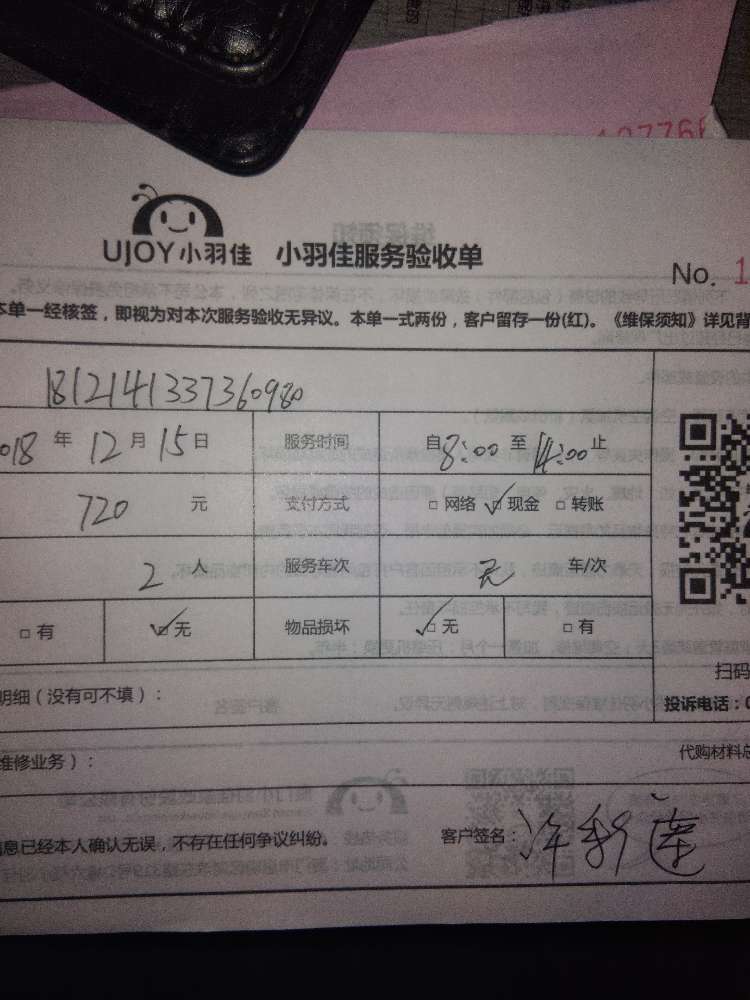 107766
UJOY小羽佳 小羽佳服务验收单
No. 1
本单一经核签，即视为对本次服务验收无异议。本单一式两份，客户留存一份(红)。《维保须知》详见背
1812141337360980
018 年 12 月 15 日 服务时间 自 8:00 至 14:00 止
720 元 支付方式 □ 网络 ☑ 现金 □ 转账
2 人 服务车次 无 车/次
□ 有 ☑ 无 物品损坏 ☑ 无 □ 有
扫码
明细（没有可不填）：
投诉电话：0
维修业务）：
代购材料总
息已经本人确认无误，不存在任何争议纠纷。 客户签名：许新莲